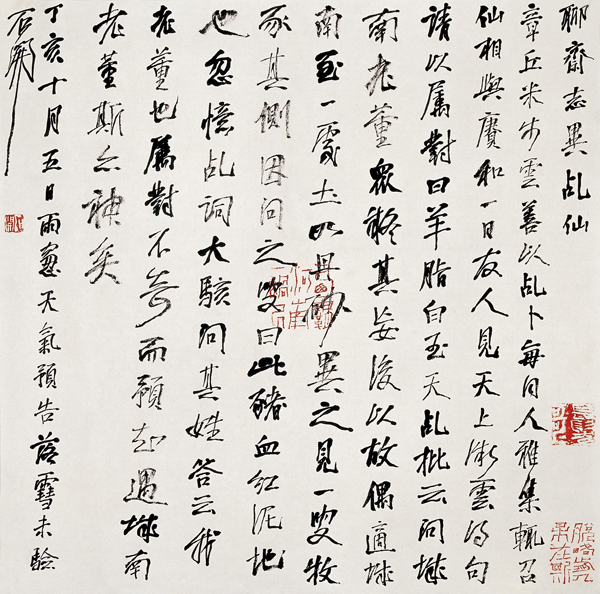 聊齋志異乩仙
章丘米步雲善以乩卜每同人雅集輒召
仙相與賡和一日友人見天上微雲得句
請以屬對曰羊脂白玉天乩批云問城
南老董眾疑其妄後以故偶適城
南至一處土如丹砂異之見一叟牧
豕其側因問之叟曰此豬血紅泥地
也忽憶乩詞大駭問其姓答云我
老董也屬對不奇而預知遇城南
老董斯亦神矣
丁亥十月五日雨窻天氣預告落雪未驗
石開